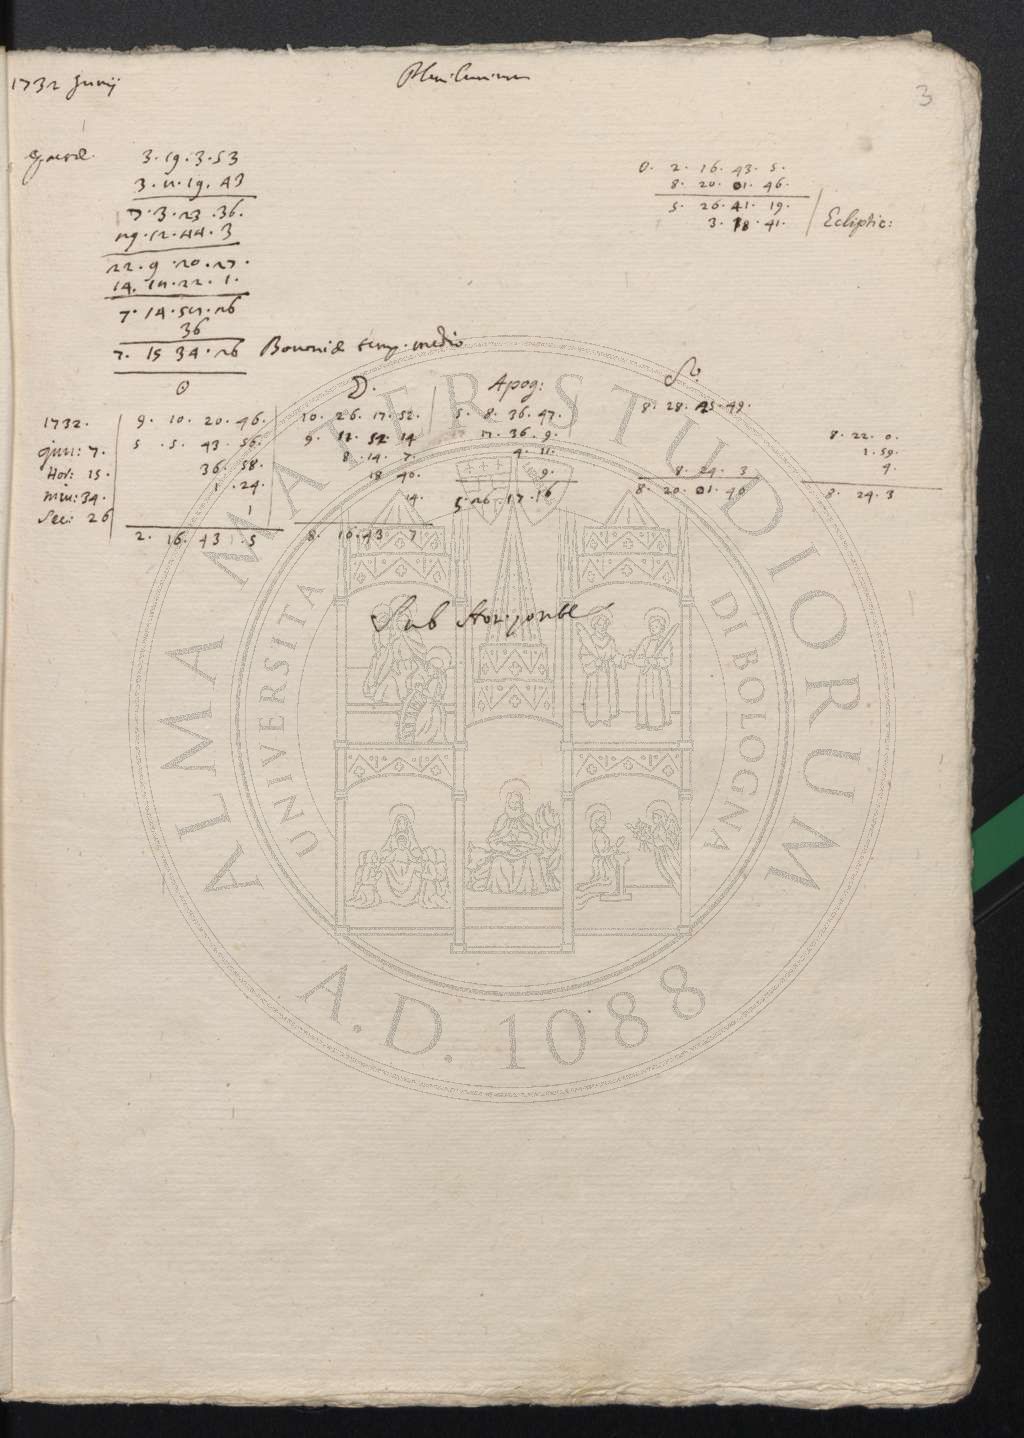 1732 Junij
Plenilunium
3
Epactæ. 3. 19. 3. 53
3. 11. 19. 43
7. 3. 23. 36.
29. 12. 44. 3
22. 9. 20. 27.
14. 18. 22. 1.
36
7. 15 34. 26 Bononiæ temp. medio
0. 2. 16. 43. 5.
8. 20. 01. 46.
5. 26. 41. 19.
3. 18. 41. Ecliptic:
☉ ☽. Apog: ☊.
1732. 9. 10. 20. 46. 10. 26. 17. 52. 5. 8. 36. 47. 8. 28. 25. 49.
Jun: 7. 5. 5. 43. 56. 9. 12. 52. 14 17. 36. 9. 8. 22. 0.
Hor: 15. 36. 58. 8. 14. 7. 4. 11. 1. 59.
min: 34. 1. 24. 18 40. 9. 8. 24. 3 4.
Sec: 26 1 14. 5. 26. 17. 16 8. 20. 01. 46 8. 24. 3
2. 16. 43. 5 8. 16. 43 7
Sub Horizonte
ALMA MATER STUDIORUM
UNIVERSITÀ DI BOLOGNA
A.D. 1088